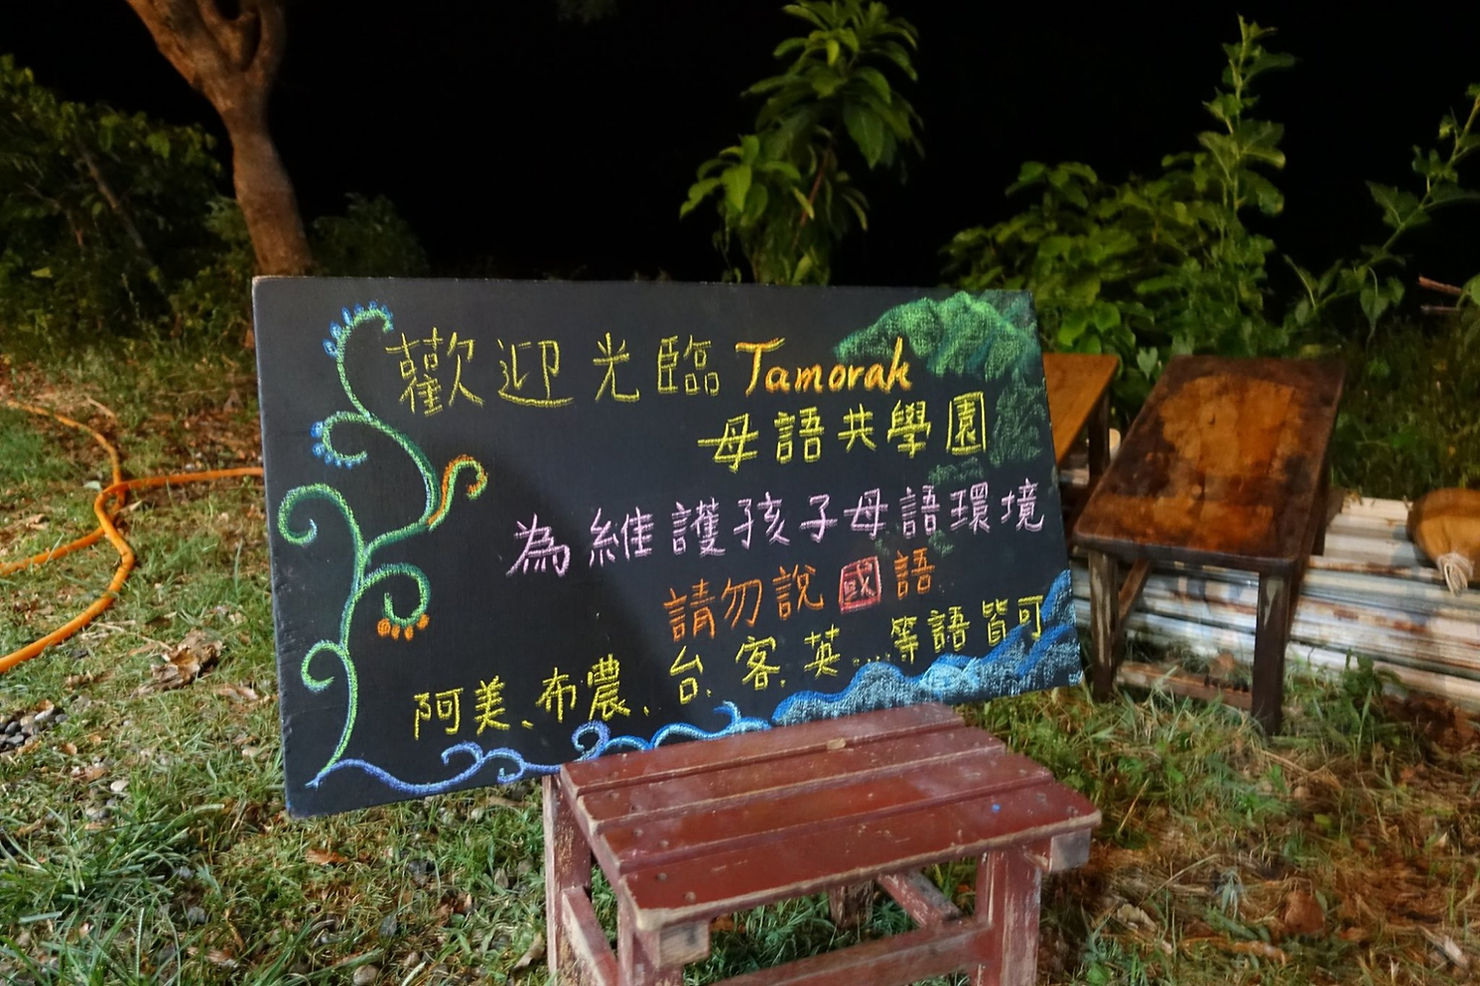 歡迎光臨Tamorak
母語共學園
為維護孩子母語環境
請勿說國語
阿美、布農、台、客、英....等語皆可